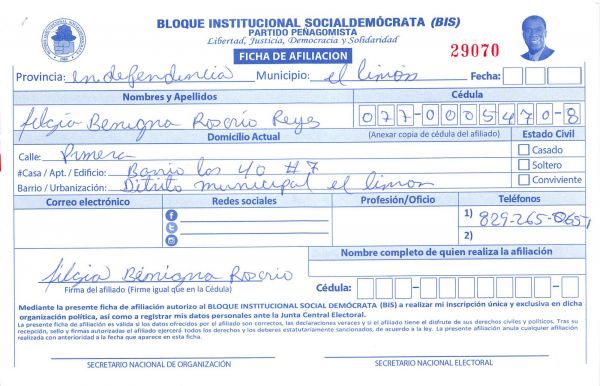 BLOQUE INSTITUCIONAL SOCIALDEMÓCRATA (BIS)
PARTIDO PEÑAGOMISTA
Libertad, Justicia, Democracia y Solidaridad
FICHA DE AFILIACION
29070
Provincia: independencia Municipio: el limón Fecha:
Nombres y Apellidos Cédula
filgia Benigna Rosario Reyes 077-0005470-8
Domicilio Actual (Anexar copia de cédula del afiliado) Estado Civil
Calle: Primera Casado
#Casa / Apt. / Edificio: Barrio los 40 #7 Soltero
Barrio / Urbanización: Ditrito municipal el limon Conviviente
Correo electrónico Redes sociales Profesión/Oficio Teléfonos
1) 829-265-0651
2)
Nombre completo de quien realiza la afiliación
filgia Benigna Rosario
Firma del afiliado (Firme igual que en la Cédula) Cédula:
Mediante la presente ficha de afiliación autorizo al BLOQUE INSTITUCIONAL SOCIAL DEMÓCRATA (BIS) a realizar mi inscripción única y exclusiva en dicha
organización política, así como a registrar mis datos personales ante la Junta Central Electoral.
La presente ficha de afiliación es válida si los datos ofrecidos por el afiliado son correctos, las declaraciones veraces y si el afiliado tiene el disfrute de sus derechos civiles y políticos. Tras su
recepción, sello y firmas autorizadas el afiliado ejercerá todos los derechos y los deberes estatutariamente sancionados, de acuerdo a la ley. La presente afiliación anula cualquier afiliación
realizada con anterioridad a la fecha que aparece en esta ficha.
SECRETARIO NACIONAL DE ORGANIZACIÓN SECRETARIO NACIONAL ELECTORAL